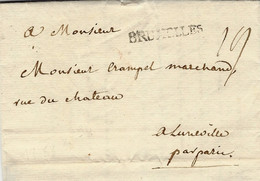 a Monsieur
BRUXELLES
19
Monsieur Crampel marchand
rue du chateau
a Luneville
par paris.